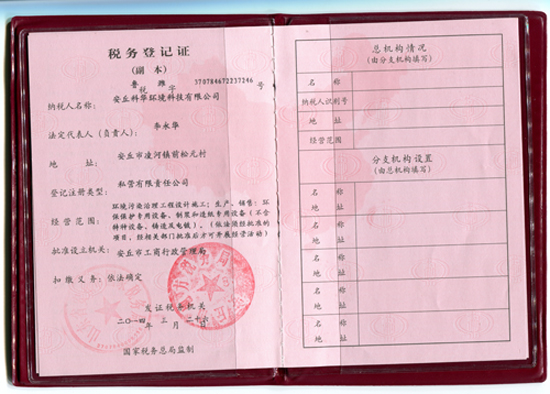 税务登记证
(副本)
鲁 潍
税 字 370784672237246 号
纳税人名称: 安丘科华环境科技有限公司
法定代表人(负责人): 李永华
地 址: 安丘市凌河镇前松元村
登记注册类型: 私营有限责任公司
经营范围: 环境污染治理工程设计施工;生产、销售:环
保保护专用设备、制浆和造纸专用设备(不含
特种设备、铸造及电镀)。(依法须经批准的
项目,经相关部门批准后方可开展经营活动)
批准设立机关: 安丘市工商行政管理局
扣缴义务: 依法确定
发证税务机关
二〇一四年 三月 二十六日
国家税务总局监制
总机构情况
(由分支机构填写)
名 称
纳税人识别号
地 址
经营范围
分支机构设置
(由总机构填写)
名 称
地 址
名 称
地 址
名 称
地 址
名 称
地 址
名 称
地 址